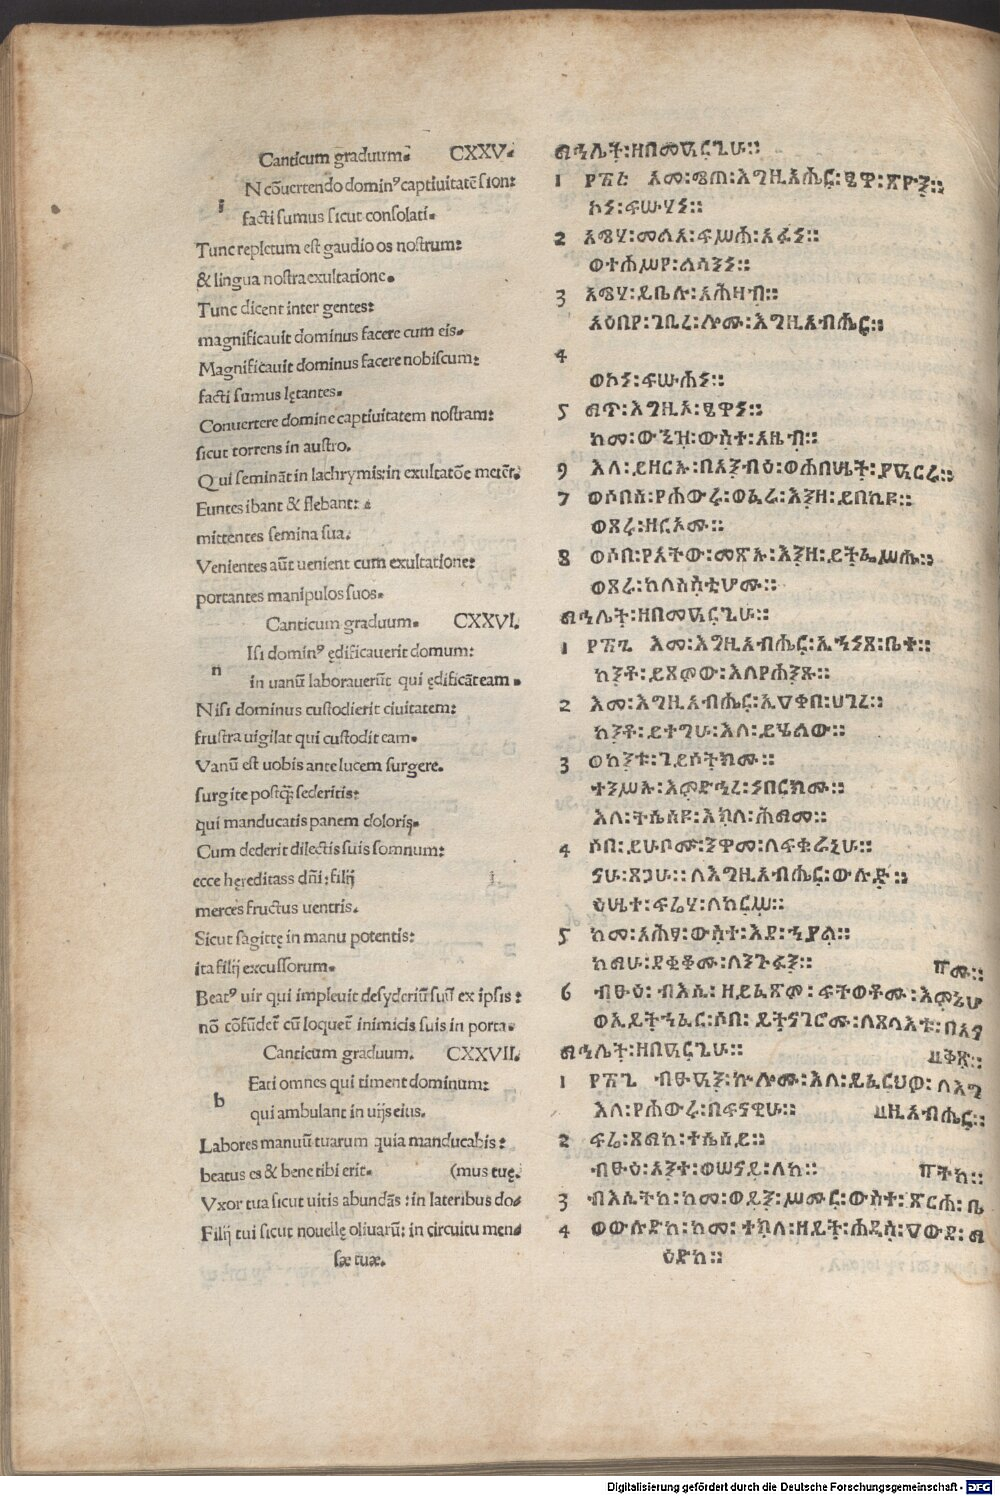 Canticum graduum. CXXV.
i N cõuertendo dominꝰ captiuitatẽ sion:
facti sumus sicut consolati.
Tunc repletum est gaudio os nostrum:
& lingua nostra exultatione.
Tunc dicent inter gentes:
magnificauit dominus facere cum eis.
Magnificauit dominus facere nobiscum:
facti sumus lętantes.
Conuertere domine captiuitatem nostram:
sicut torrens in austro.
Qui seminãt in lachrymis: in exultatõe metẽt.
Euntes ibant & flebant:
mittentes semina sua.
Venientes aũt uenient cum exultatione:
portantes manipulos suos.
Canticum graduum. CXXVI.
n Isi dominꝰ ędificauerit domum:
in uanũ laborauerũt qui ędificãt eam.
Nisi dominus custodierit ciuitatem:
frustra uigilat qui custodit eam.
Vanũ est uobis ante lucem surgere.
surgite postq̃ sederitis:
qui manducatis panem doloris.
Cum dederit dilectis suis somnum:
ecce hęreditass dñi: filij
merces fructus uentris.
Sicut sagittę in manu potentis:
ita filij excussorum.
Beatꝰ uir qui impleuit desyderiũ suũ ex ipsis:
nõ cõfũdet̃ cũ loquet̃ inimicis suis in porta.
Canticum graduum. CXXVII.
b Eati omnes qui timent dominum:
qui ambulant in uijs eius.
Labores manuũ tuarum quia manducabis:
beatus es & bene tibi erit. (mus tuę.
Vxor tua sicut uitis abundãs: in lateribus do-
Filij tui sicut nouellę oliuarũ: in circuitu men-
sæ tuæ.
ማኅሌት፡ዘበመዓርጊሁ።
1 ፻፳፭ አመ፡ሜጠ፡እግዚአብሔር፡ፄዋ፡ጽዮን።
ኮነ፡ፍሡሓነ።
2 አሜሃ፡መልአ፡ፍሥሐ፡አፉነ።
ወተሐሥየ፡ልሳንነ።
3 አሜሃ፡ይቤሉ፡አሕዛብ።
አዕበየ፡ገቢረ፡ሎሙ፡እግዚአብሔር።
4
ወኮነ፡ፍሡሓነ።
5 ሚጥ፡እግዚኦ፡ፄዋነ።
ከመ፡ውኂዝ፡ውስተ፡አዜብ።
9 እለ፡ይዘርኡ፡በአንብዕ፡ወሐበሤት፡የዓርሩ።
7 ወሶበሰ፡የሐውሩ፡ወፈሩ፡እንዘ፡ይበክዩ።
ወጾሩ፡ዘርኦሙ።
8 ወሶበ፡የአትው፡መጽኡ፡እንዘ፡ይትፌሥሑ።
ወጾሩ፡ከላስስቲሆሙ።
ማኅሌት፡ዘበመዓርጊሁ።
1 ፻፳፮ እመ፡እግዚአብሔር፡ኢኀነጸ፡ቤተ።
ከንቶ፡ይጻመው፡እለየሐንጹ።
2 እመ፡እግዚአብሔር፡ኢዐቀበ፡ሀገረ።
ከንቶ፡ይተግሁ፡እለ፡ይሄልው።
3 ወከንቱ፡ገይሶትክሙ።
ተንሥኡ፡እምድኅረ፡ነበርክሙ።
እለ፡ትሴሰዩ፡እክለ፡ሕማመ።
4 ሶበ፡ይሁቦሙ፡ንዋመ፡ለፍቁራኒሁ።
ናሁ፡ጸጋሁ።ለእግዚአብሔር፡ውሉድ።
ዕሤተ፡ፍሬሃ፡ለከርሥ።
5 ከመ፡አሕፃ፡ውስተ፡እደ፡ኀያል።
ከማሁ፡ደቂቆሙ፡ለንጉፋን። ፐሙ።
6 ብፁዕ፡ብእሲ፡ዘይፌጽም፡ፍትወቶሙ፡እምኔሆ
ወኢይትኀፈር፡ሶበ፡ይትናገሮሙ፡ለጸላእቱ፡በአና
ማኅሌት፡ዘበዓርጊሁ። ቅጽ።
1 ፻፳፯ ብፁዓን፡ኵሎሙ፡እለ፡ይፈርህዎ፡ለእግ
እለ፡የሐውሩ፡በፍናዊሁ። ዚአብሔር።
2 ፍሬ፡ጻማከ፡ተሴሰይ።
ብፁዕ፡አንተ፡ወሠናይ፡ለከ። ፐትከ።
3 ብእሲትከ፡ከመ፡ወይን፡ሥሙር፡ውስተ፡ጽርሐ፡ቤ
4 ወውሉድከ፡ከመ፡ተክለ፡ዘይት፡ሐዲስ፡ዐውደ፡ማ
ዕድከ።
Digitalisierung gefördert durch die Deutsche Forschungsgemeinschaft - DFG